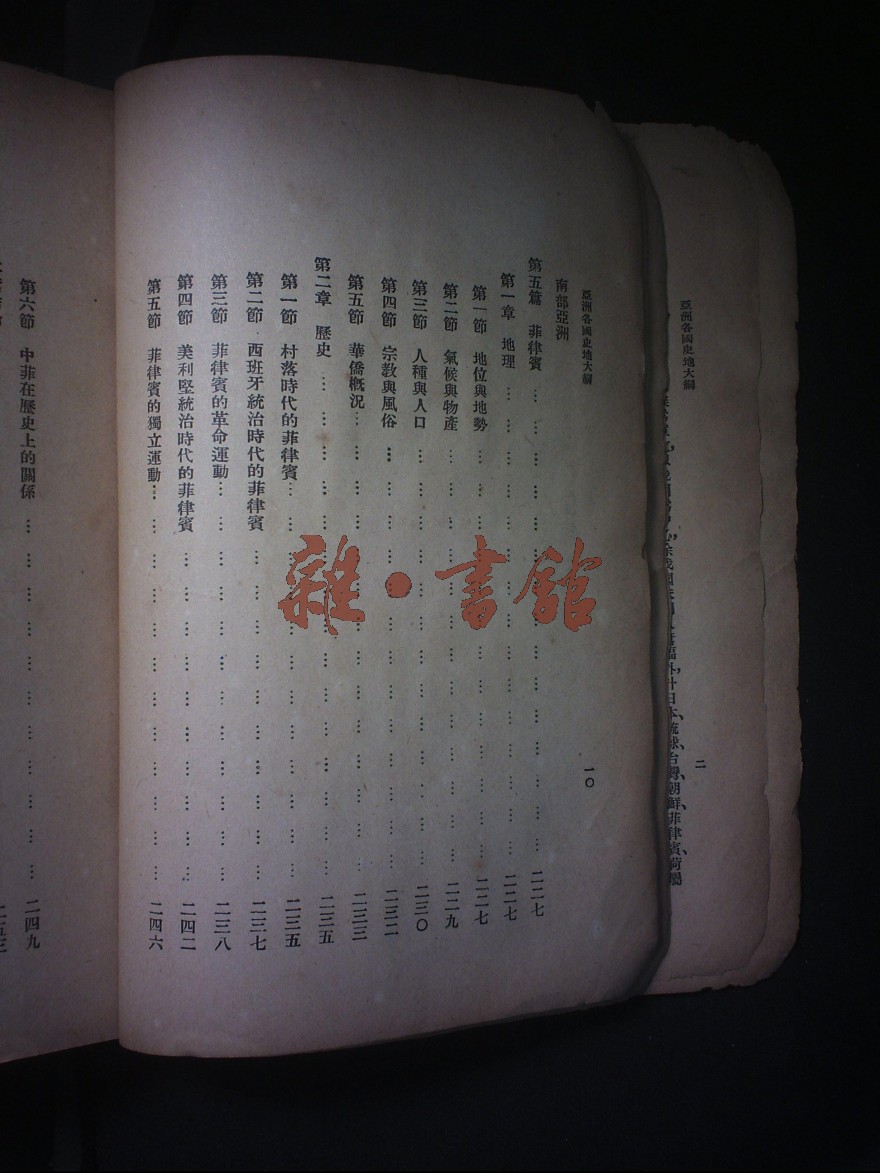 亞洲各國史地大綱
二
亞洲各國史地大綱
一〇
南部亞洲
第五篇 菲律賓 … … … … … … … … 二二七
第一章 地理 … … … … … … … … 二二七
第一節 地位與地勢 … … … … … … … … 二二七
第二節 氣候與物產 … … … … … … … … 二二九
第三節 人種與人口 … … … … … … … … 二三〇
第四節 宗教與風俗 … … … … … … … … 二三二
第五節 華僑概況 … … … … … … … … 二三三
第二章 歷史 … … … … … … … … 二三五
第一節 村落時代的菲律賓 … … … … … … … 二三五
第二節 西班牙統治時代的菲律賓 … … … … … … 二三七
第三節 菲律賓的革命運動 … … … … … … … 二三八
第四節 美利堅統治時代的菲律賓 … … … … … … 二四二
第五節 菲律賓的獨立運動 … … … … … … … 二四六
第六節 中菲在歷史上的關係 … … … … … … … 二四九
雜·書館